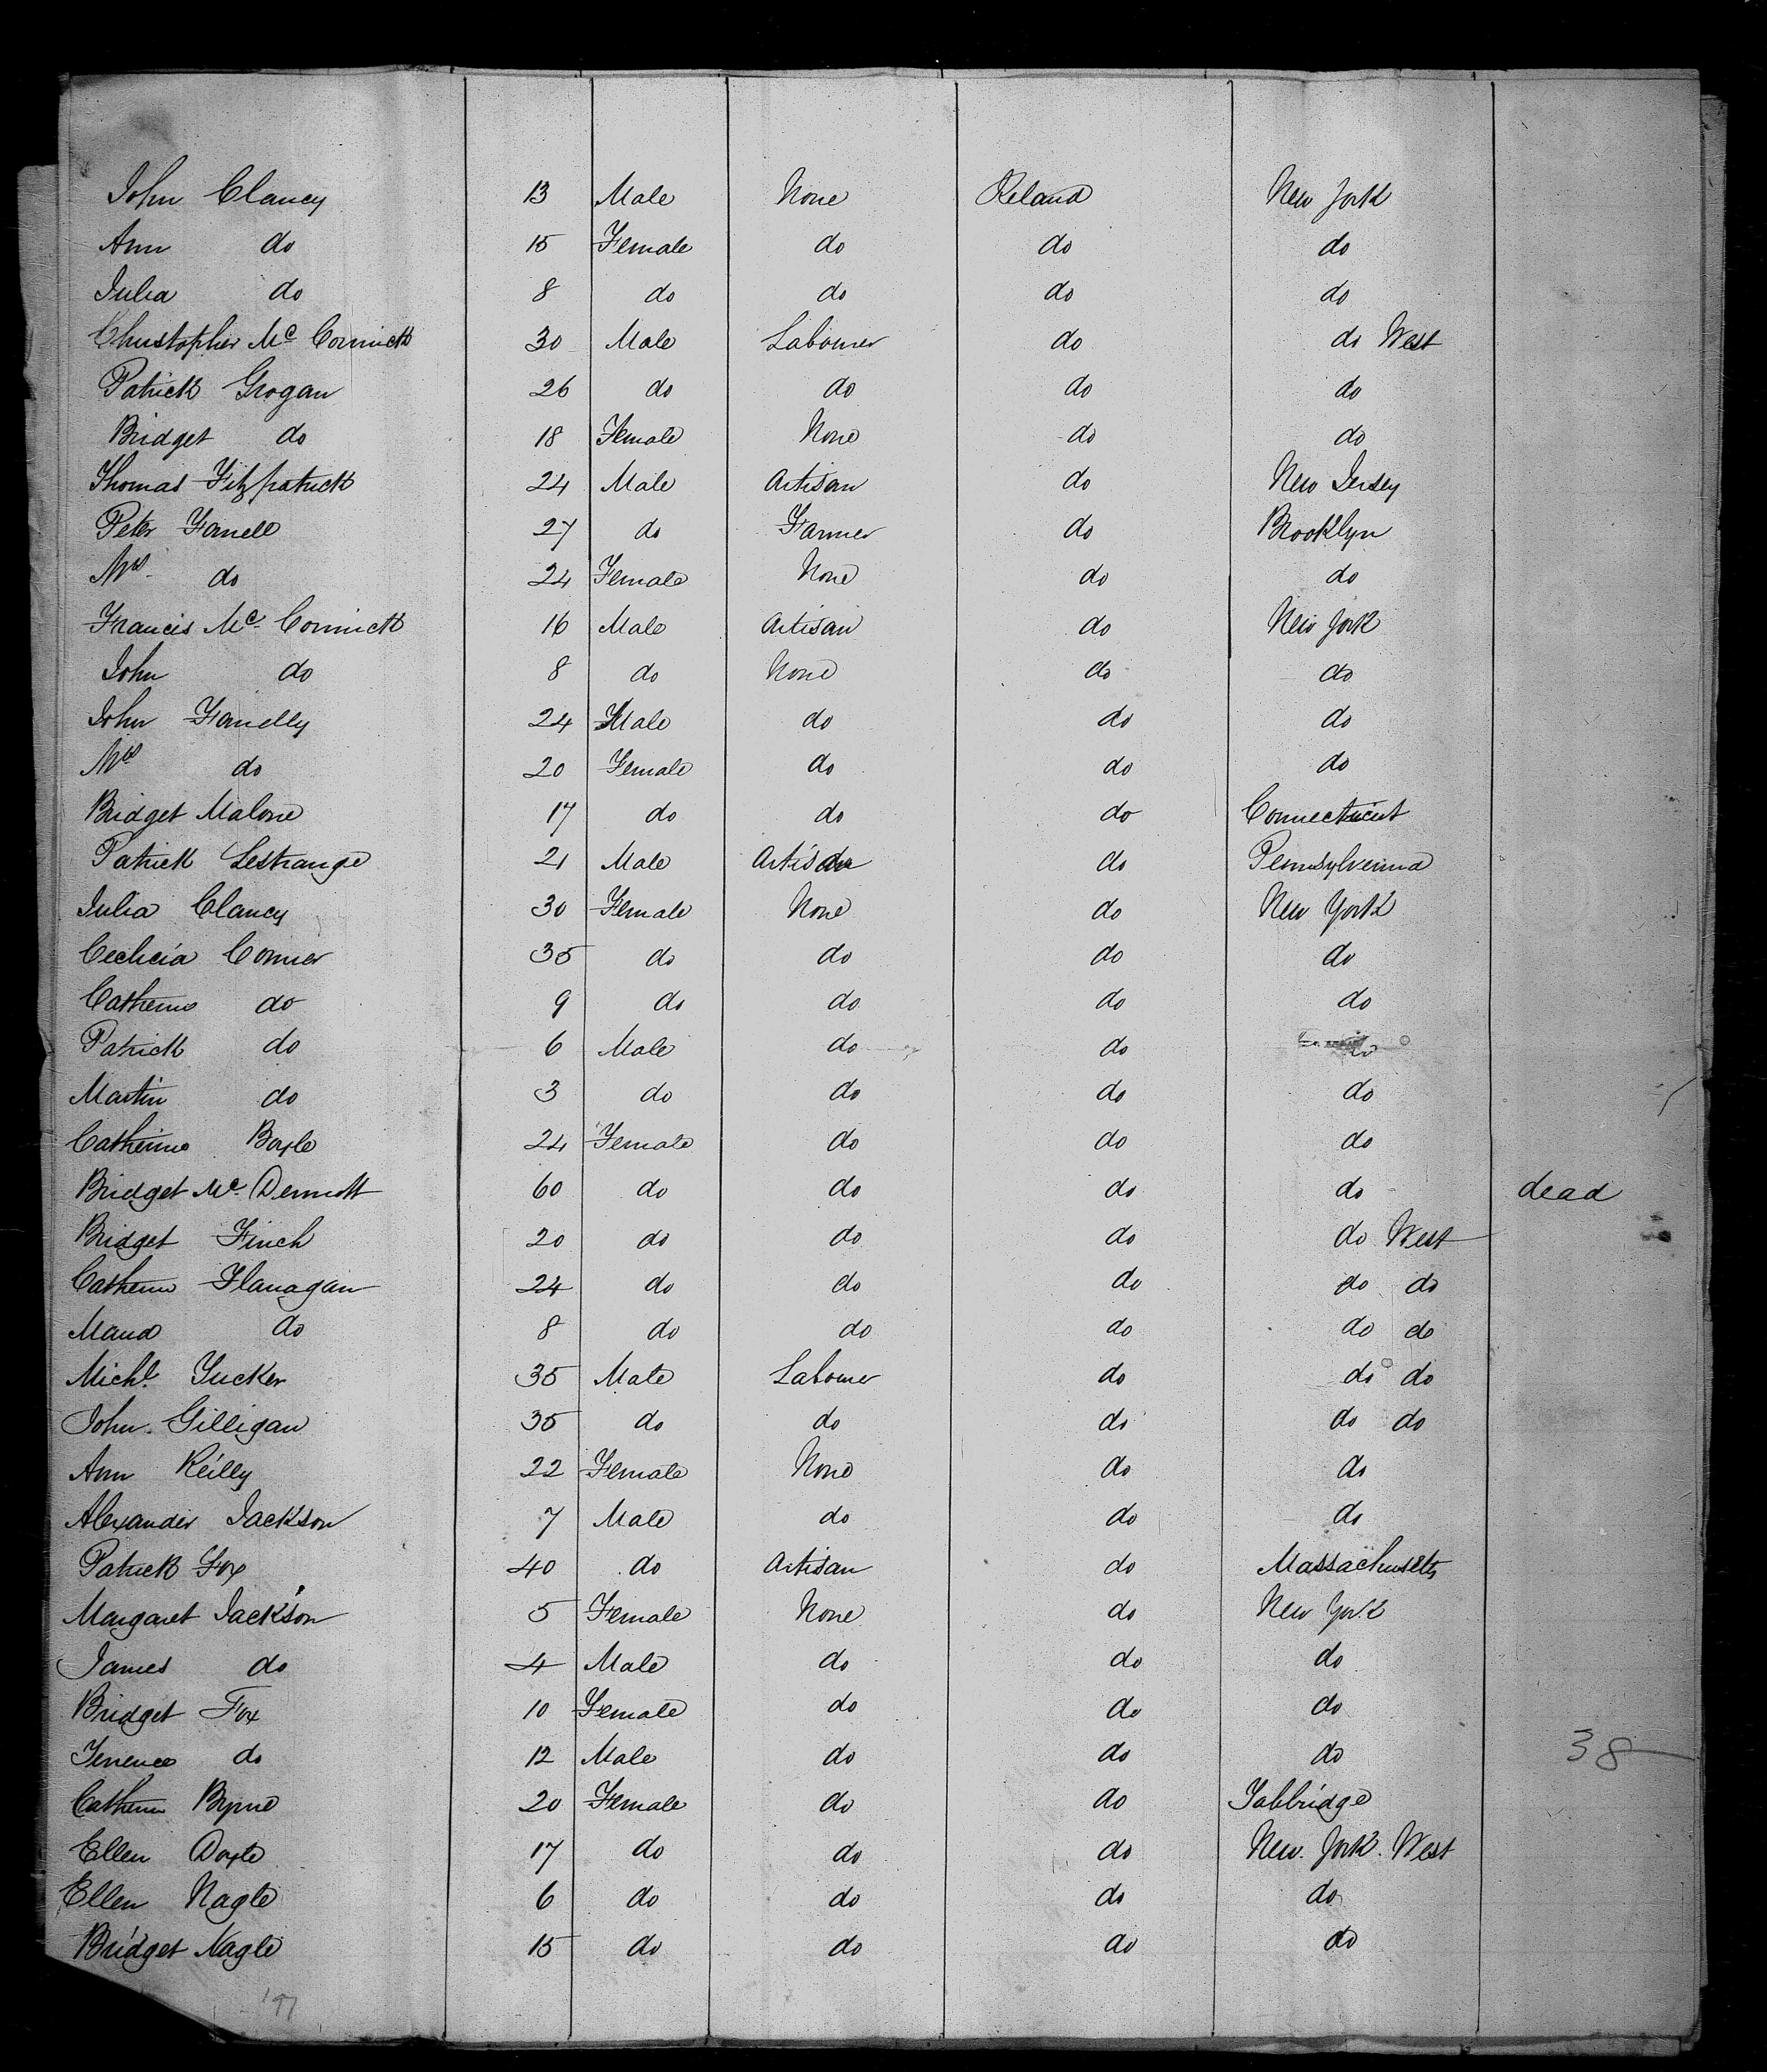 John Clancy 13 Male None Ireland New York
Ann do 15 Female do do do
Julia do 8 do do do do
Christopher Mc Cormick 30 Male Labourer do do West
Patrick Grogan 26 do do do do
Bridget do 18 Female None do do
Thomas Fitzpatrick 24 Male Artisan do New Jersey
Peter Farrell 27 do Farmer do Brooklyn
Mrs do 24 Female None do do
Francis Mc Cormick 16 Male Artisan do New York
John do 8 do None do do
John Farrelly 24 Male do do do
Mrs do 20 Female do do do
Bridget Malone 17 do do do Connecticut
Patrick Lestrange 21 Male Artisan do Pennsylvenina
Julia Clancy 30 Female None do New York
Cecilia Conner 35 do do do do
Catherine do 9 do do do do
Patrick do 6 Male do do do
Martin do 3 do do do do
Catherine Boyle 24 Female do do do
Bridget Mc Dermott 60 do do do do dead
Bridget Finch 20 do do do do West
Catherine Flanagan 24 do do do do do
Maria do 8 do do do do do
Michl. Tucker 35 Male Labourer do do do
John Gilligan 35 do do do do do
Ann Reilly 22 Female None do do
Alexander Jackson 7 Male do do do
Patrick Fox 40 do Artisan do Massachusetts
Margaret Jackson 5 Female None do New York
James do 4 Male do do do
Bridget Fox 10 Female do do do
Terrence do 12 Male do do do
38
Catherine Byrne 20 Female do do
Ellen Doyle 17 do do do New York West
Ellen Nagle 6 do do do do
Bridget Nagle 15 do do do do